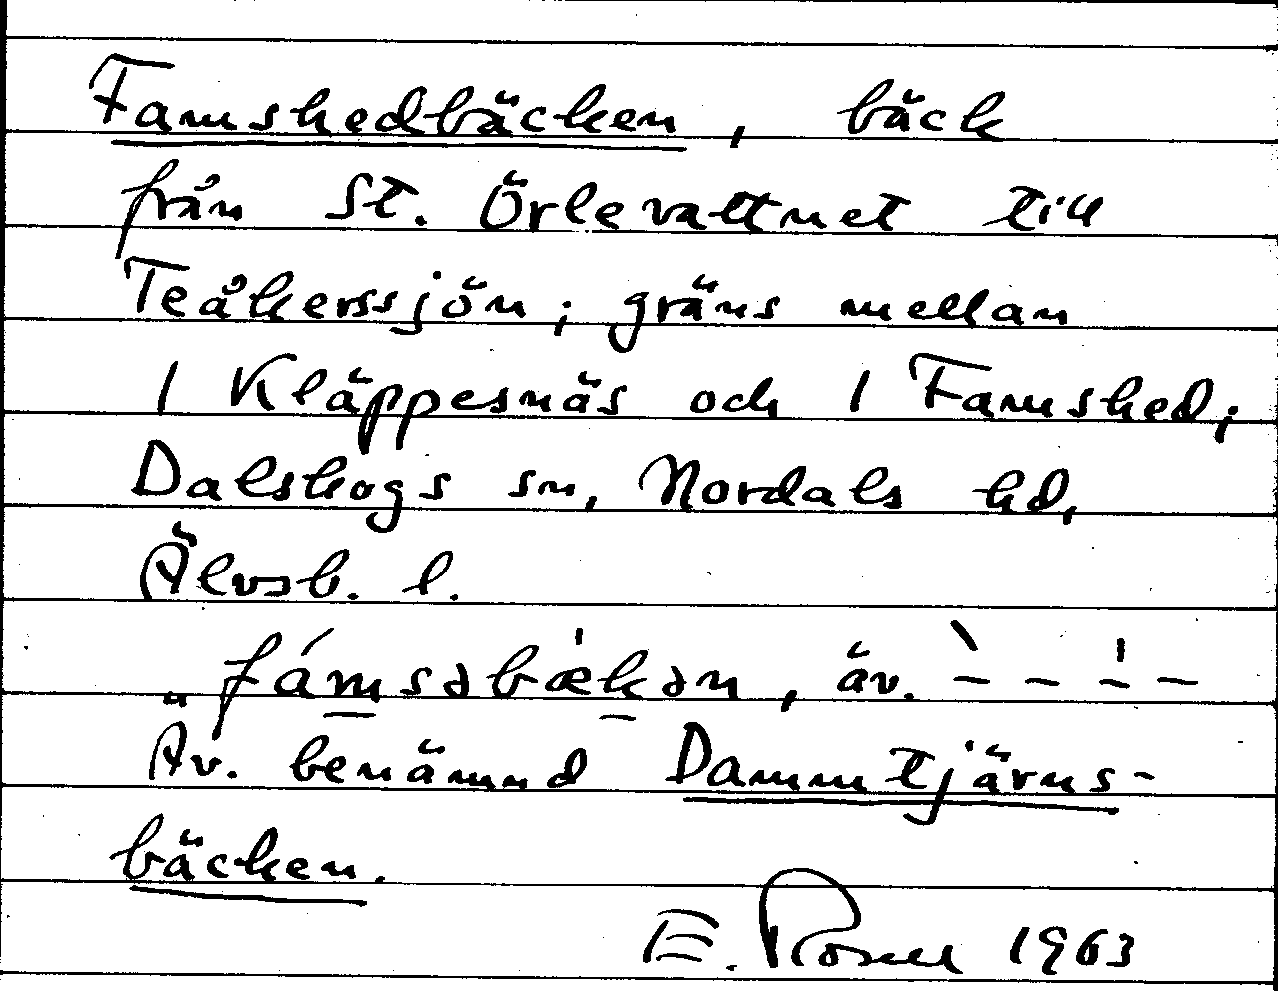 Famshedbäcken, bäck
från St. Örlevattnet till
Teåkerssjön; gräns mellan
1 Kläppesnäs och 1 Famshed;
Dalskogs sn, Nordals hd,
Älvsb. l.
„ fámsəbækən, äv. ` – – ˈ – –
Äv. benämnd Dammtjärns-
bäcken.
E. 1963